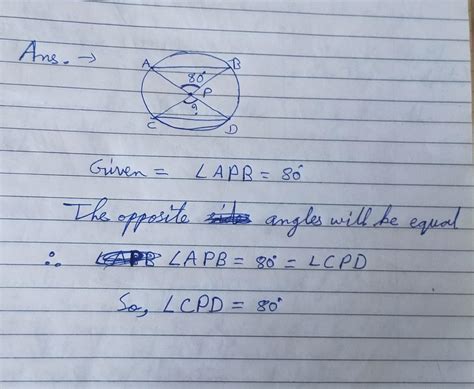 Ans. →
A B
80°
P
?
C D
Given = ∠APB = 80°
The opposite angles will be equal
∴ ∠APB = 80° = ∠CPD
So, ∠CPD = 80°